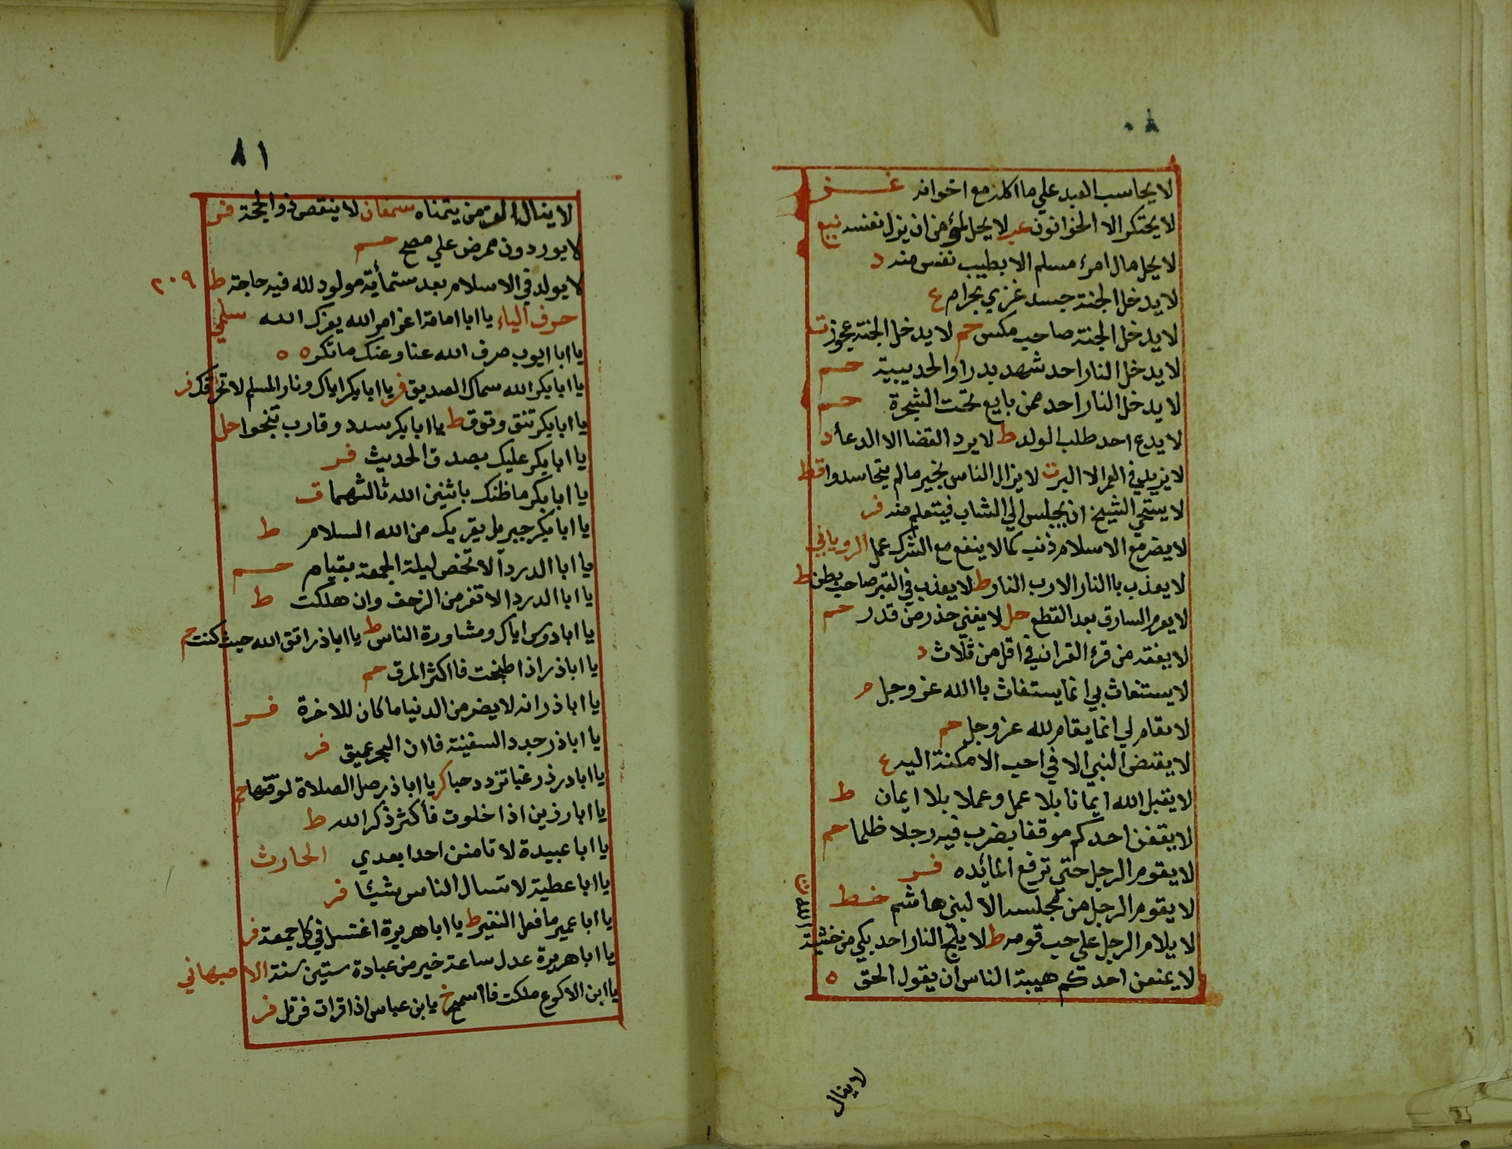 ٨٠
لا يحاسب العبد علي ما اكله مع اخوانه
لا يحتكر الا الخوانون عد لا يحل لمؤمن ان يزل نفسه
لا يحل مال امرء مسلم الا بطيب نفس منه د
لا يدخل الجنة جسد غزي بحرام ع
لا يدخل الجنة صاحب مكس حم لا يدخل الجنة عجوز ت
لا يدخل النار احد شهد بدرا والحديبية حم
لا يدخل النار احد ممن بايع تحت الشجرة حم
لا يدع احد طلب الولد ط لا يرد القضا الا الدعا د
لا يزيد في العمر الا البر ت لا يزال الناس بخير مالم يتحاسدوا قط
لا يستحي الشيخ ان يجلس الي الشاب فيتعلم منه فر
لا يضر مع الاسلام ذنب كما لا ينفع مع الشرك عمل الروياني
لا يعذب باالنار الا رب النار ط لا يعذب في القبر صاحب بطن ط
لا يغرم السارق بعد القطع حل لا يغني حذر من قدر حم
لا يفقه من قرء القران في اقل من ثلاث د
لا يستغاث بي انما يستغاث باالله عز وجل م
لا يقام لي انما يقام لله عز وجل حم
لا يقبض النبي الا في احب الامكنة اليه ع
لا يقبل الله ايمانا بلا عمل وعملا بلا ايمان ط
لا يقفن احدكم موقفا يضرب فيه رجلا ظلما حم
لا يقوم الرجل حتي ترفع المائده فر
لا يقوم الرجل من مجلسه الا لبني هاشم خط
لا يلام الرجل علي حب قومه ط لا يلج النار احد بكي من خشية
الله ن
لا يمنعن احدكم هيبة الناس ان يقول الحق ه
لا ينال
٨١
لا ينال العز من يتمناه سمعان لا ينقص ذو الحجة فر
لا يوردون ممرض علي مصح حم
لا يولد في الاسلام بعد ستمأية مولود لله فيه حاجة ط ٢٠٩
حرف الياء يا ابا امامة اعز امر الله يعزك الله سلمي
يا ابا ايوب صرف الله عنا وعنك ما تكره
يا ابا بكر الله سماك الصديق فر يا ابا بكر اياك ونار المسلم لا تحرقك فر
يا ابا بكر تنق وتوق ط يا ابا بكر سدد وقارب تنجوا حل
يا ابا بكر عليك بصدق الحديث فر
يا ابا بكر ما ظنك باثنين الله ثالثهما ق
يا ابا بكر جبريل يقريك من الله السلام ط
يا ابا الدردآ لا تخص ليلة الجمعة بقيام حم
يا ابا الدردا لا تفر من الزحف وان هلكت ط
يا اباد اياك ومشاورة الناس ط يا اباذر اتق الله حيث كنت حم
يا اباذر اذا طبخت فااكثر المرق حم
يا اباذر انه لا يضر من الدنيا ما كان للاخرة فر
يا اباذر جدد السفينة فاان البحر عميق فر
يا اباذر زر غبا تزدد حبا كر يا اباذر صل الصلاة لوقتها حم
يا ابا رزين اذا خلوت فأكثر ذكر الله ط
يا ابا عبيدة لا تامنن احدا بعدي الحارث
يا ابا عطية لا تسال الناس شيئا فر
يا ابا عمير ما فعل النغير ط يا ابا هريرة اغتسل في كل جمعة فر
يا ابا هريرة عدل ساعة خير من عبادة ستين سنة الاصبهاني
يا ابن الاكوع ملكت فااسمح خ يا بن عباس اذا قرات فرتل فر